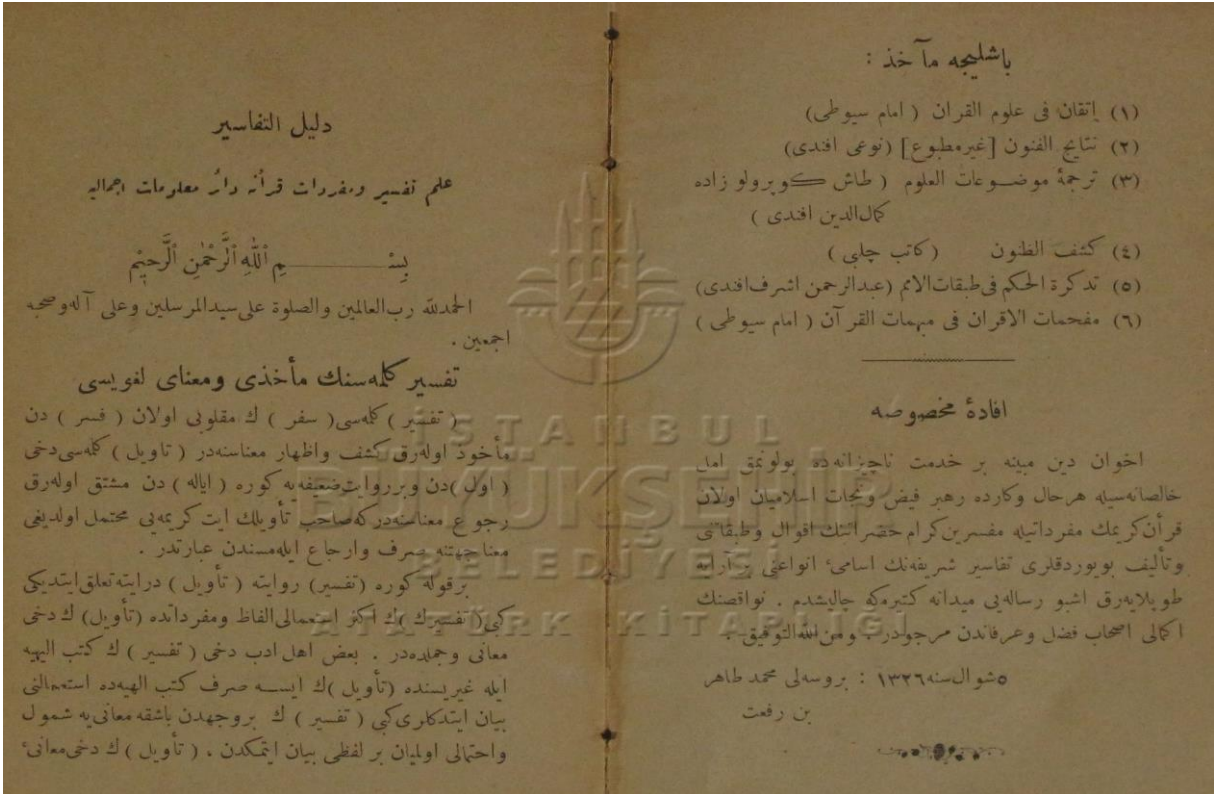 باشليجه مآخذ :
(١) إتقان فى علوم القران ( امام سيوطى)
(٢) نتايج الفنون [غيرمطبوع] (نوعى افندى)
(٣) ترجمۀ موضوعات العلوم ( طاش كوپرولو زاده
كمال‌الدين افندى )
(٤) كشف الظنون (كاتب چلبى )
(٥) تذكرة الحكم فى طبقات‌الامم (عبدالرحمن اشرف‌افندى)
(٦) مفحمات الاقران فى مبهمات القرآن ( امام سيوطى )
افادۀ مخصوصه
اخوان دين مبينه بر خدمت ناچيزانه‌ده بولونمق امل
خالصانه‌سيله هرحال وكارده رهبر فيض ونجات اسلاميان اولان
قرأن‌كريمك مفرداتيله مفسرين‌كرام حضراتنك اقوال وطبقاتنى
وتأليف بويوردقلرى تفاسير شريفه‌نك اسامئ انواعنى بر آرايه
طوپلايه‌رق اشبو رساله‌يى ميدانه كتيرمكه چاليشدم . نواقصنك
اكمالى اصحاب فضل وعرفاندن مرجودر . ومن‌الله‌التوفيق .
٥ شوال‌سنه ١٣٢٦ : بروسه‌لى محمد طاهر
بن رفعت
دليل التفاسير
علم تفسير ومفردات قرآنه دائر معلومات اجماليه
بِسْمِ ٱللّٰهِ ٱلرَّحْمٰنِ ٱلرَّحِيْمِ
الحمدلله رب‌العالمين والصلوة على‌سيدالمرسلين وعلى آله‌وصحبه
اجمعين .
تفسير كلمه‌سنك مأخذى ومعناى لغويسى
( تفسير ) كلمه‌سى ( سفر ) ك مقلوبى اولان ( فسر ) دن
مأخوذ اوله‌رق كشف واظهار معناسنه‌در ( تاويل ) كلمه‌سى‌دخى
( اول )دن وبرروايت‌ضعيفه‌يه كوره ( اياله ) دن مشتق اوله‌رق
رجوع معناسنه‌دركه‌صاحب تأويلك ايت كريمه‌يى محتمل اولديغى
معنا جهتنه صرف وارجاع ايله‌مسندن عبارتدر .
برقوله كوره (تفسير) روايته ( تأويل ) درايته‌تعلق‌ايتديكى
كبى ( تفسيرك )ك اكثر استعمالى‌الفاظ ومفرداتده (تأويل) ك‌دخى
معانى وجمله‌ده‌در . بعض اهل‌ادب دخى ( تفسير ) ك كتب الهيه
ايله غيريسنده (تأويل )ك ايسه صرف كتب الهيه‌ده استعمالنى
بيان ايتدكلرى‌كبى ( تفسير ) ك بروجهدن باشقه معانى‌يه شمول
واحتمالى اولميان بر لفظى بيان ايتمكدن ، ( تأويل ) ك دخى‌معانئ